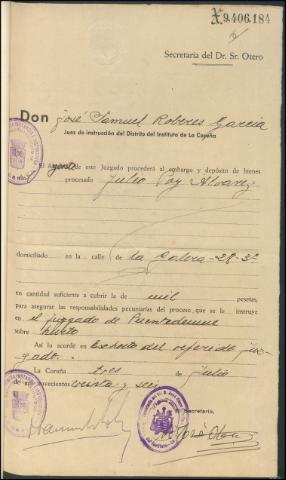 X.9.406.184
Secretaría del Dr. Sr. Otero
Don José Samuel Roberes García
Juez de instrucción del Distrito del Instituto de La Coruña
El Agente de este Juzgado procederá al embargo y depósito de bienes
procesado Julio Poy Alvarez
domiciliado en la calle de la Galera-28-3º
en cantidad suficiente a cubrir la de mil pesetas,
para asegurar las responsabilidades pecuniarias del proceso que se instruye
en el juzgado de Puentedeume
sobre hurto
Así lo acordé en Exhorto del referido juz-
gado.
La Coruña tres de Julio
de mil novecientos treinta y seis
Secretario,
José Otero